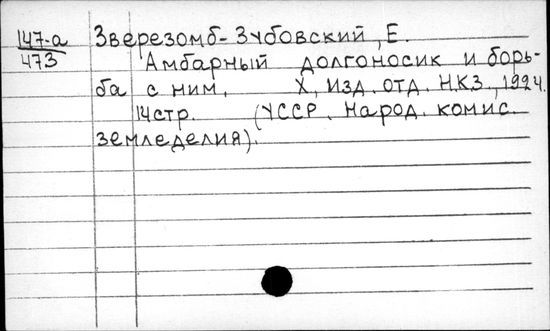 147-а
473
Зверезомб-Зубовский, Е.
Амбарный долгоносик и борь-
ба с ним. Х, Изд. отд. НКЗ, 1924.
14 стр. (УССР. Народ. комис.
земледелия).